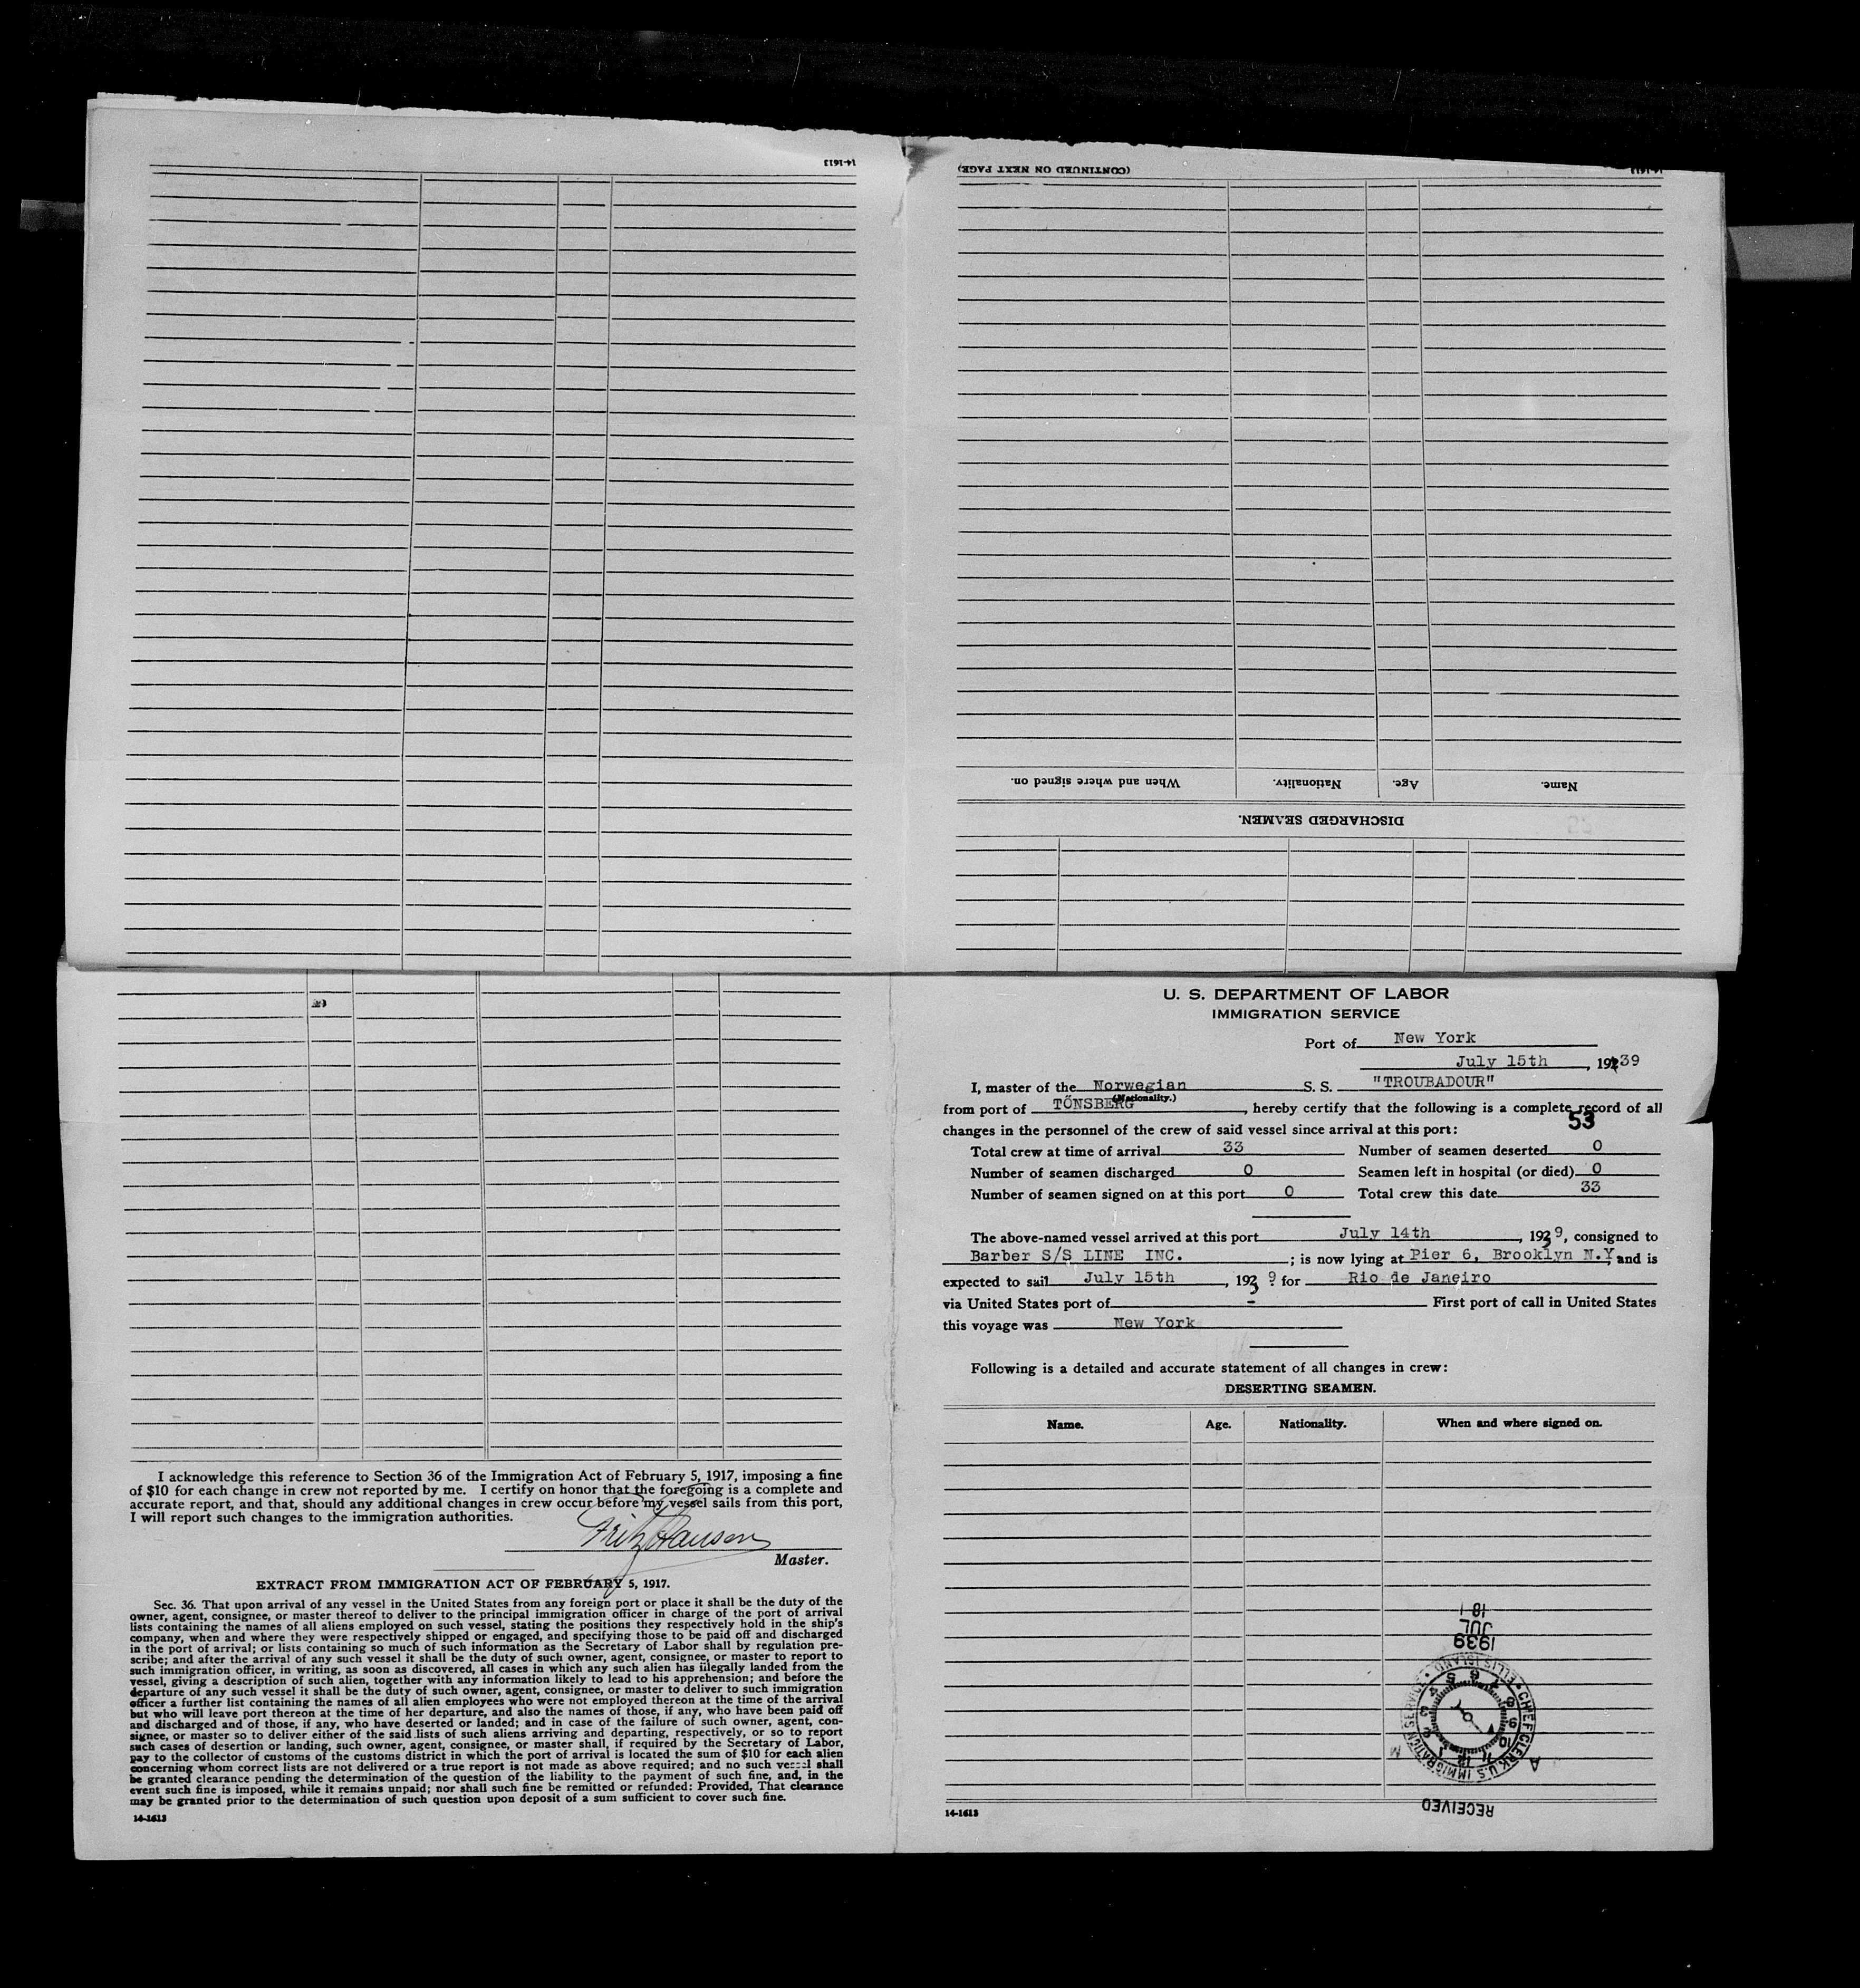 14-1613
(CONTINUED ON NEXT PAGE)
14-1613
When and where signed on. Nationality. Age. Name.
DISCHARGED SEAMEN.
U. S. DEPARTMENT OF LABOR
IMMIGRATION SERVICE
Port of New York
July 15th, 1939
I, master of the Norwegian S. S. "TROUBADOUR"
(Nationality.)
from port of TÖNSBERG, hereby certify that the following is a complete record of all
53
changes in the personnel of the crew of said vessel since arrival at this port:
Total crew at time of arrival 33 Number of seamen deserted 0
Number of seamen discharged 0 Seamen left in hospital (or died) 0
Number of seamen signed on at this port 0 Total crew this date 33
The above-named vessel arrived at this port July 14th, 1939, consigned to
Barber S/S LINE INC. ; is now lying at Pier 6, Brooklyn N.Y, and is
expected to sail July 15th, 1939 for Rio de Janeiro
via United States port of - First port of call in United States
this voyage was New York
Following is a detailed and accurate statement of all changes in crew:
DESERTING SEAMEN.
Name. Age. Nationality. When and where signed on.
RECEIVED
CHIEF CLERK U.S. IMMIGRATION SERVICE • ELLIS ISLAND •
1939
JUL
18
14-1613
I acknowledge this reference to Section 36 of the Immigration Act of February 5, 1917, imposing a fine
of $10 for each change in crew not reported by me. I certify on honor that the foregoing is a complete and
accurate report, and that, should any additional changes in crew occur before my vessel sails from this port,
I will report such changes to the immigration authorities.
Fritz Hansen
Master.
EXTRACT FROM IMMIGRATION ACT OF FEBRUARY 5, 1917.
Sec. 36. That upon arrival of any vessel in the United States from any foreign port or place it shall be the duty of the
owner, agent, consignee, or master thereof to deliver to the principal immigration officer in charge of the port of arrival
lists containing the names of all aliens employed on such vessel, stating the positions they respectively hold in the ship's
company, when and where they were respectively shipped or engaged, and specifying those to be paid off and discharged
in the port of arrival; or lists containing so much of such information as the Secretary of Labor shall by regulation pre-
scribe; and after the arrival of any such vessel it shall be the duty of such owner, agent, consignee, or master to report to
such immigration officer, in writing, as soon as discovered, all cases in which any such alien has illegally landed from the
vessel, giving a description of such alien, together with any information likely to lead to his apprehension; and before the
departure of any such vessel it shall be the duty of such owner, agent, consignee, or master to deliver to such immigration
officer a further list containing the names of all alien employees who were not employed thereon at the time of the arrival
but who will leave port thereon at the time of her departure, and also the names of those, if any, who have been paid off
and discharged and of those, if any, who have deserted or landed; and in case of the failure of such owner, agent, con-
signee, or master so to deliver either of the said lists of such aliens arriving and departing, respectively, or so to report
such cases of desertion or landing, such owner, agent, consignee, or master shall, if required by the Secretary of Labor,
pay to the collector of customs of the customs district in which the port of arrival is located the sum of $10 for each alien
concerning whom correct lists are not delivered or a true report is not made as above required; and no such vessel shall
be granted clearance pending the determination of the question of the liability to the payment of such fine, and, in the
event such fine is imposed, while it remains unpaid; nor shall such fine be remitted or refunded: Provided, That clearance
may be granted prior to the determination of such question upon deposit of a sum sufficient to cover such fine.
14-1613